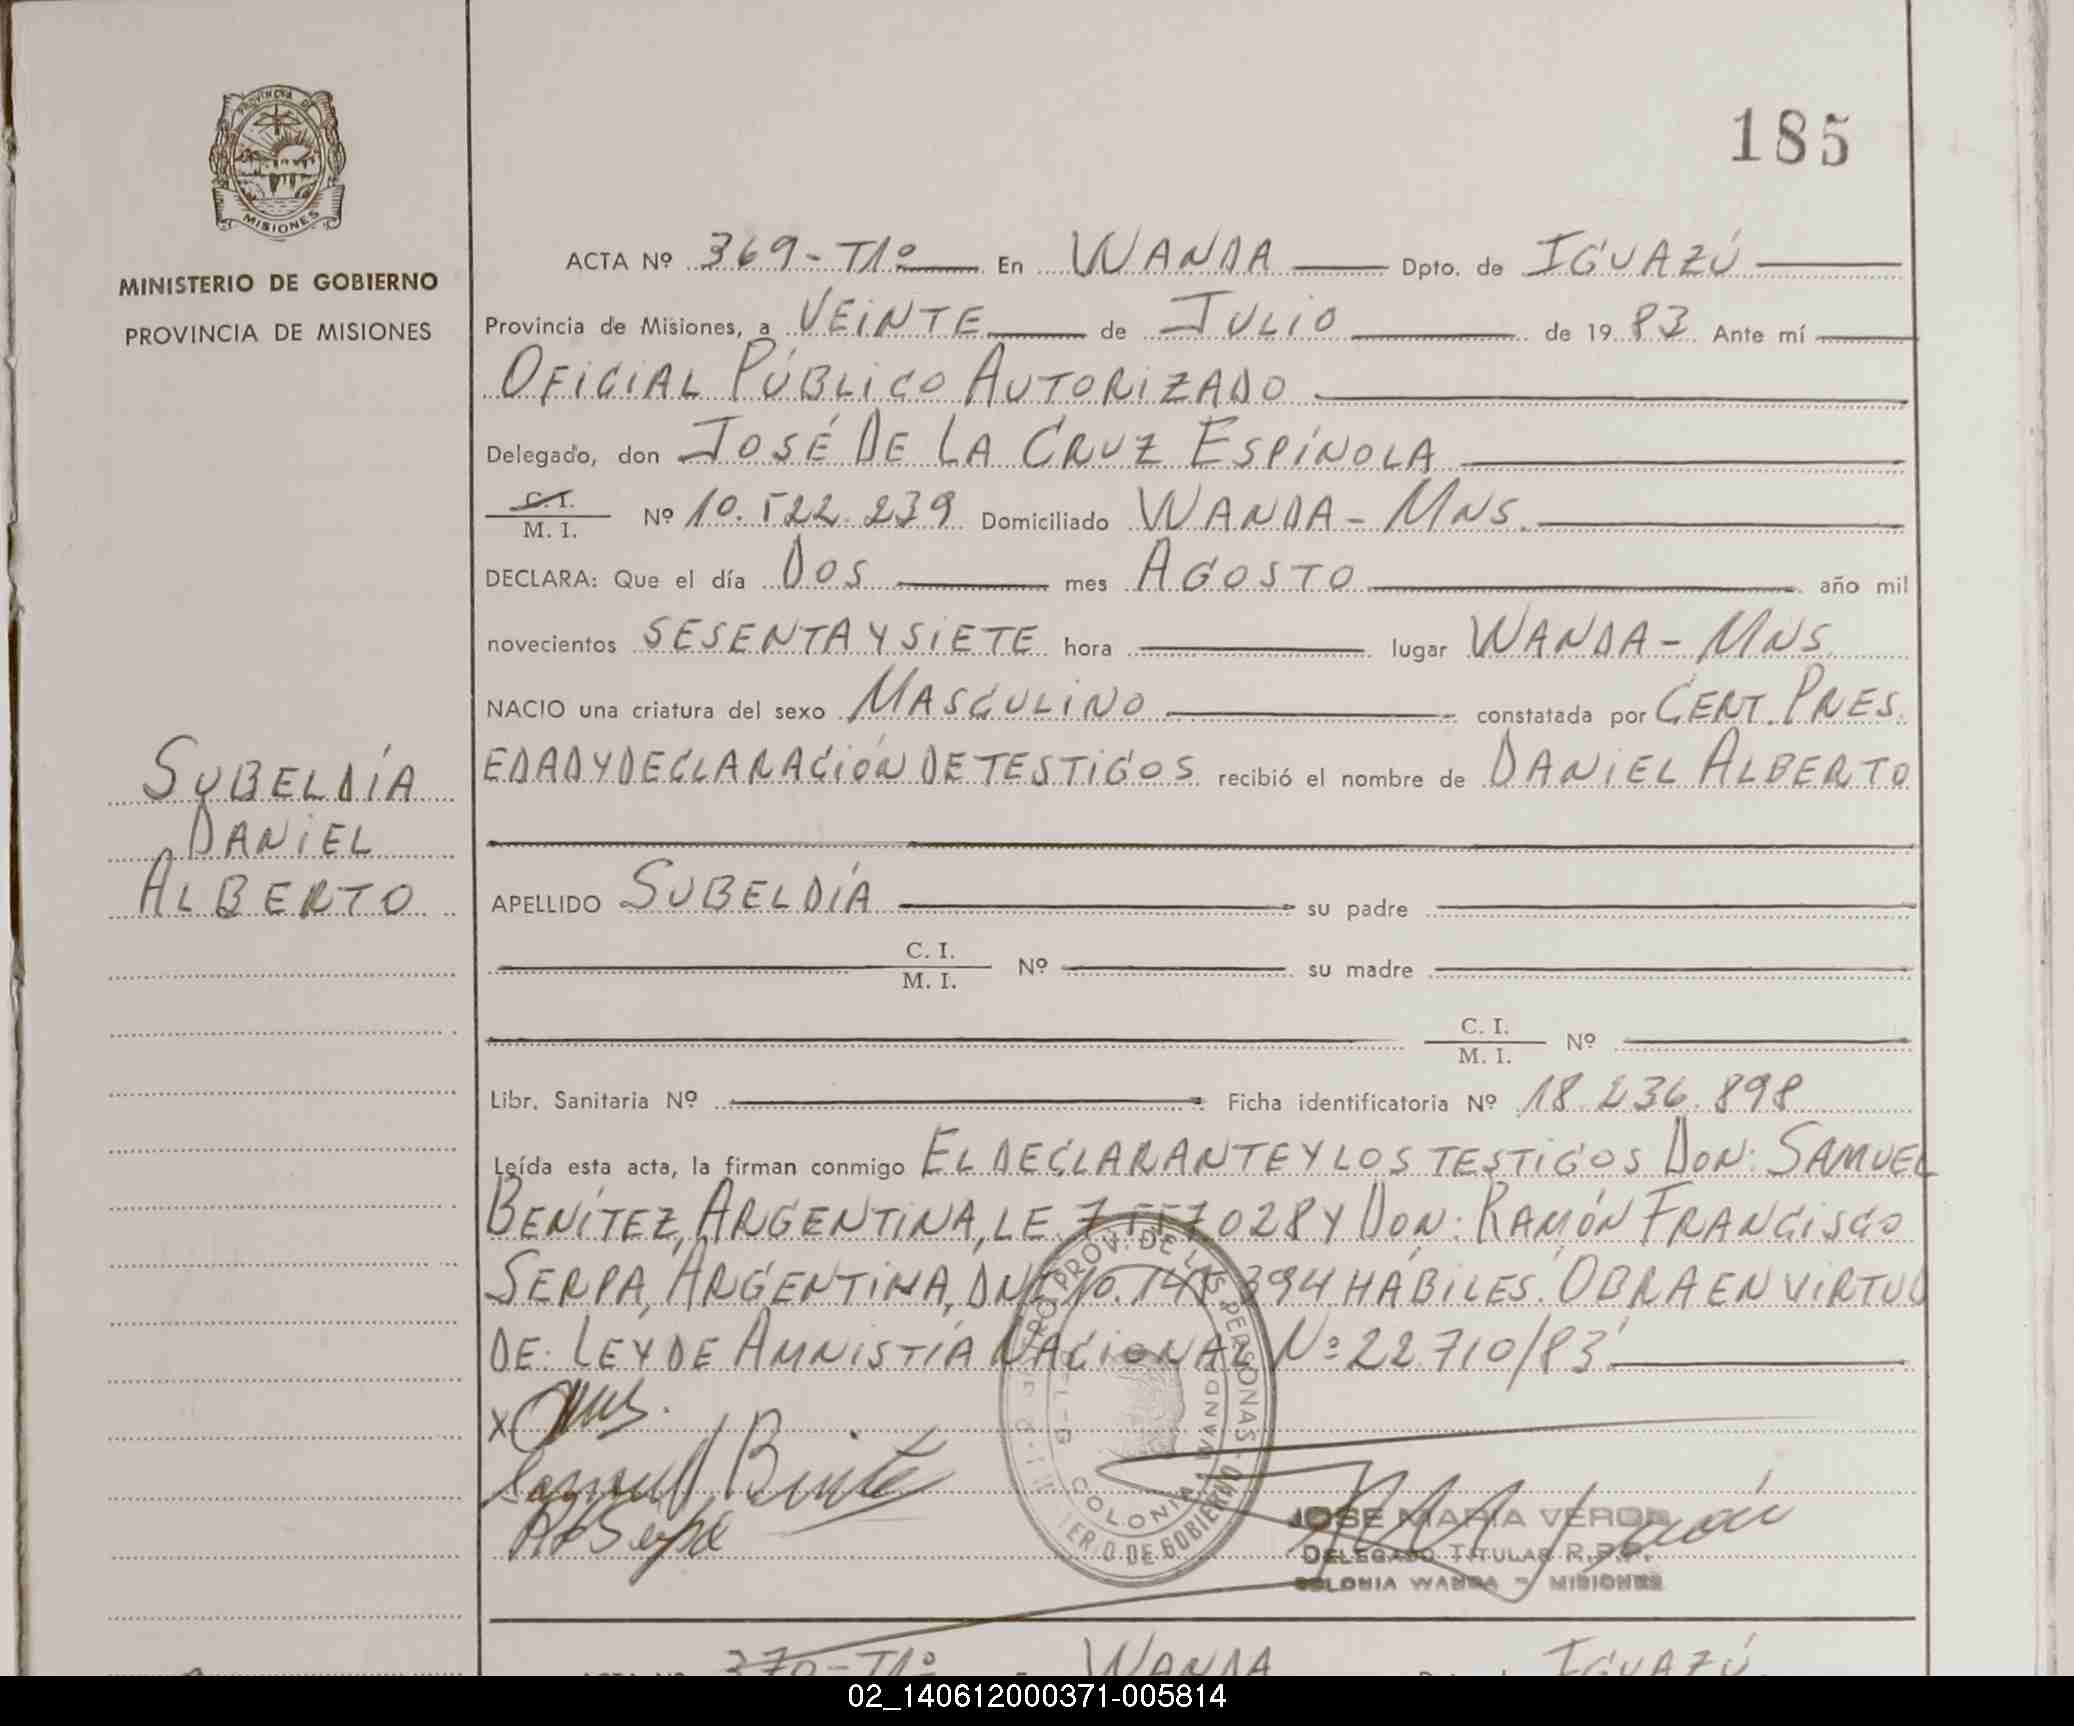 PROVINCIA DE
MISIONES
MINISTERIO DE GOBIERNO
PROVINCIA DE MISIONES
185
ACTA Nº 369-T1º En WANDA Dpto. de IGUAZÚ
Provincia de Misiones, a VEINTE de JULIO de 1983 Ante mí
OFICIAL PÚBLICO AUTORIZADO
Delegado, don JOSÉ DE LA CRUZ ESPÍNOLA
C. I.
M. I.
Nº 10.522.239 Domiciliado WANDA - MNS.
DECLARA: Que el día DOS mes AGOSTO año mil
novecientos SESENTA Y SIETE hora lugar WANDA - MNS.
NACIO una criatura del sexo MASCULINO constatada por CERT. PRES.
EDAD Y DECLARACIÓN DE TESTIGOS recibió el nombre de DANIEL ALBERTO
SUBELDÍA
DANIEL
ALBERTO
APELLIDO SUBELDÍA su padre
C. I.
M. I.
Nº su madre
C. I.
M. I.
Nº
Libr. Sanitaria Nº Ficha identificatoria Nº 18.236.898
Leída esta acta, la firman conmigo EL DECLARANTE Y LOS TESTIGOS DON: SAMUEL
BENÍTEZ, ARGENTINA, LE. 7.557.028 Y DON: RAMÓN FRANCISCO
SERPA, ARGENTINA, DNI 10. 394 HÁBILES. OBRA EN VIRTUD
DE: LEY DE AMNISTÍA NACIONAL Nº 22.710/83
Samuel Benitez
RFSerpa
PROV. DE LAS PERSONAS
COLONIA WANDA
DE GOBIERNO
JOSE MARIA VERON
DELEGADO TITULAR R.P.P.
COLONIA WANDA - MISIONES
370-T1º WANDA IGUAZÚ
02_140612000371-005814